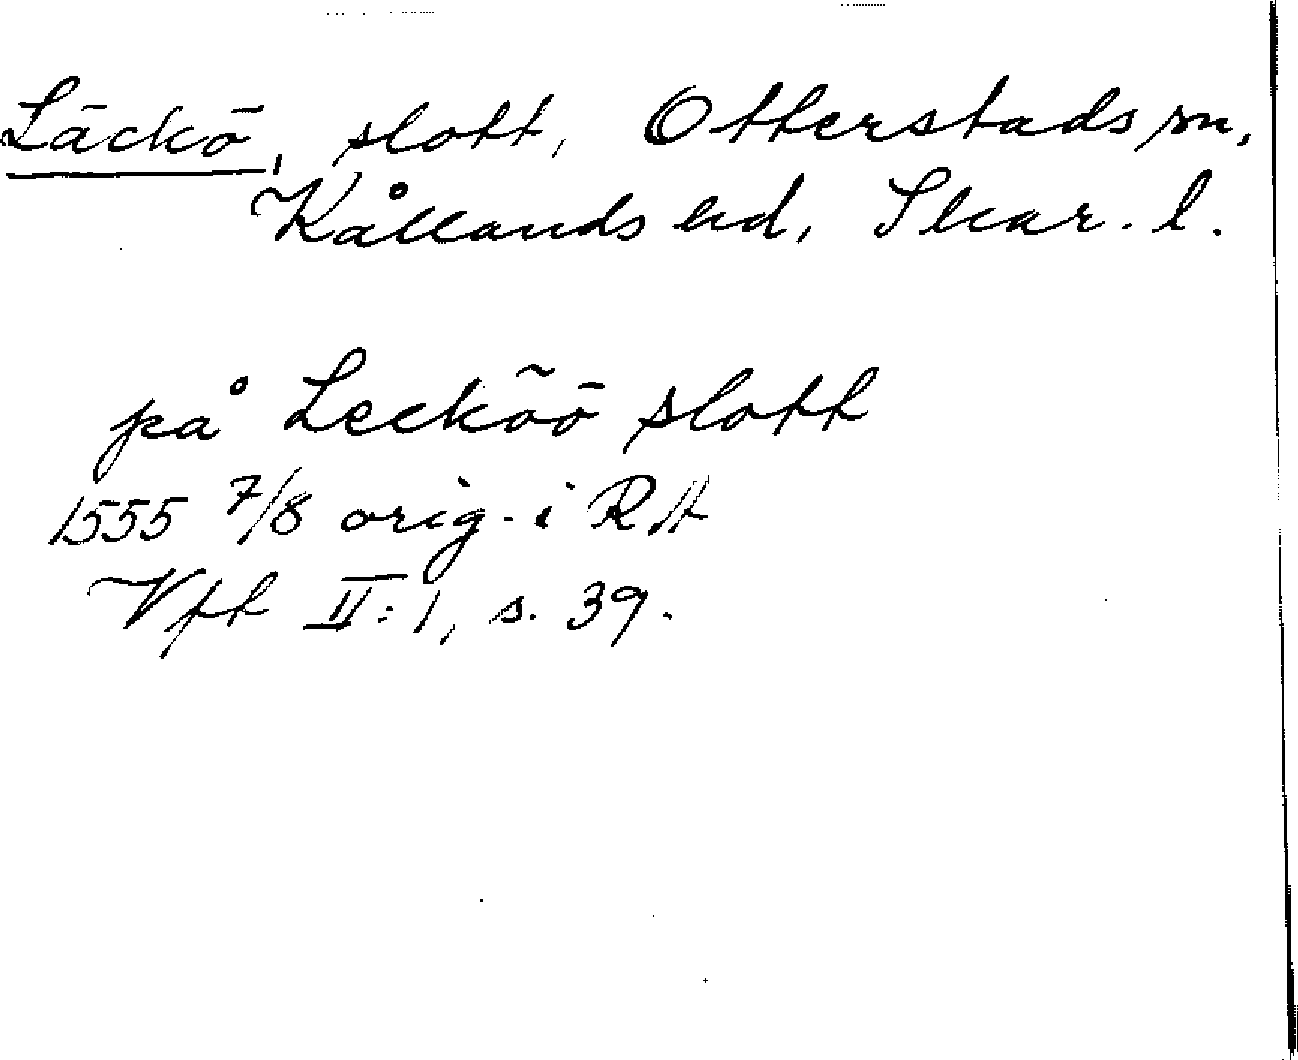 Läckö, slott, Otterstads sn,
Kållands hd, Skar. l.
på Leckőö slott
1555 7/8 orig. i RA
Vfh II:1, s. 39.